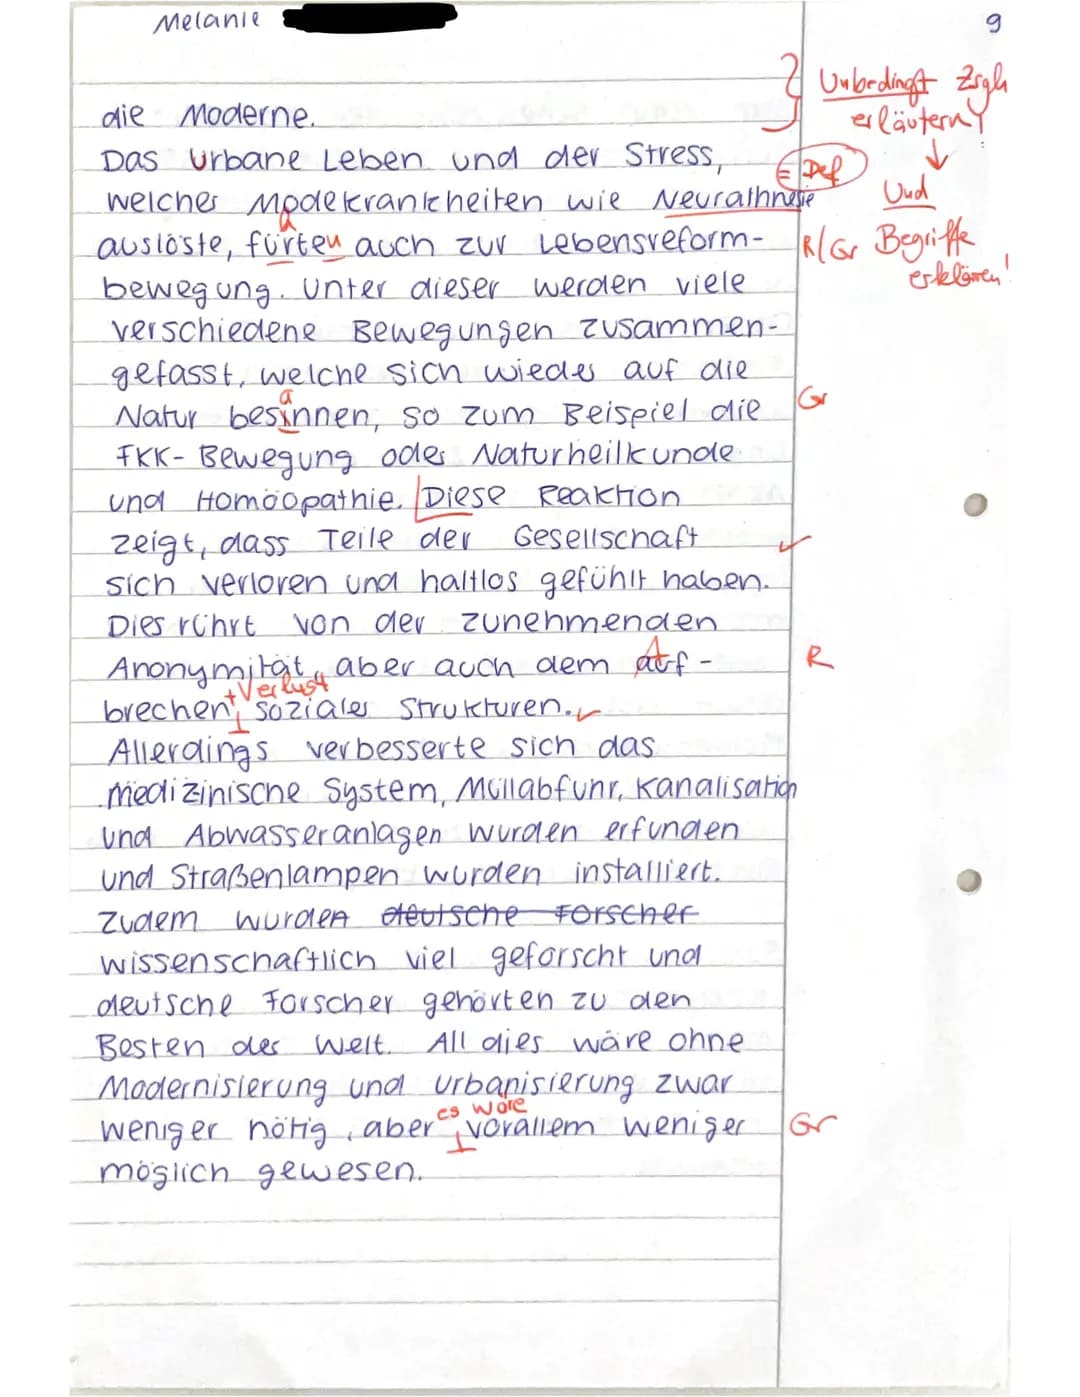 Melanie
9
die Moderne.
} Unbedingt Zsgh
erläutern!
↓
Und
Begriffe
erklären!
Das Urbane Leben und der Stress,
= Def
welcher Modekrankheiten wie Neurathnesie
a
auslöste, fürten auch zur Lebensreform-
R/Gr
bewegung. Unter dieser werden viele
verschiedene Bewegungen zusammen-
gefasst, welche sich wieder auf die
a
Natur besinnen, so zum Beispiel die
Gr
FKK-Bewegung oder Naturheilkunde
und Homöopathie. Diese Reaktion
zeigt, dass Teile der Gesellschaft
✓
sich verloren und haltlos gefühlt haben.
Dies rührt von der zunehmenden
A
Anonymität, aber auch dem auf-
R
+ Verlust
brechen soziale Strukturen. ✓
Allerdings verbesserte sich das
Medizinische System, Müllabfuhr, Kanalisation
und Abwasseranlagen wurden erfunden
und Straßenlampen wurden installiert.
Zudem wurden deutsche Forscher
wissenschaftlich viel geforscht und
deutsche Forscher gehörten zu den
Besten der Welt. All dies wäre ohne
Modernisierung und Urbanisierung zwar
es wäre
weniger nötig, aber vorallem weniger
Gr
möglich gewesen.